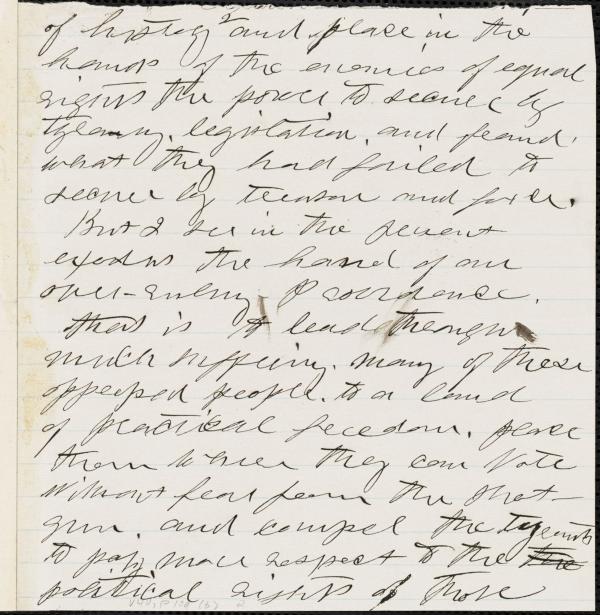 of history and place in the
hands of the enemies of equal
rights the power to secure by
tyranny, legislation, and fraud,
what they had failed to
secure by treason and force.
But I see in the present
exodus the hand of an
over-ruling Providence.
that is to lead through
much suffering, many of these
oppressed people, to a land
of practical freedom, place
them where they can vote
without fear from the shot-
gun, and compel the tyrants
to pay more respect to the the
political rights of those